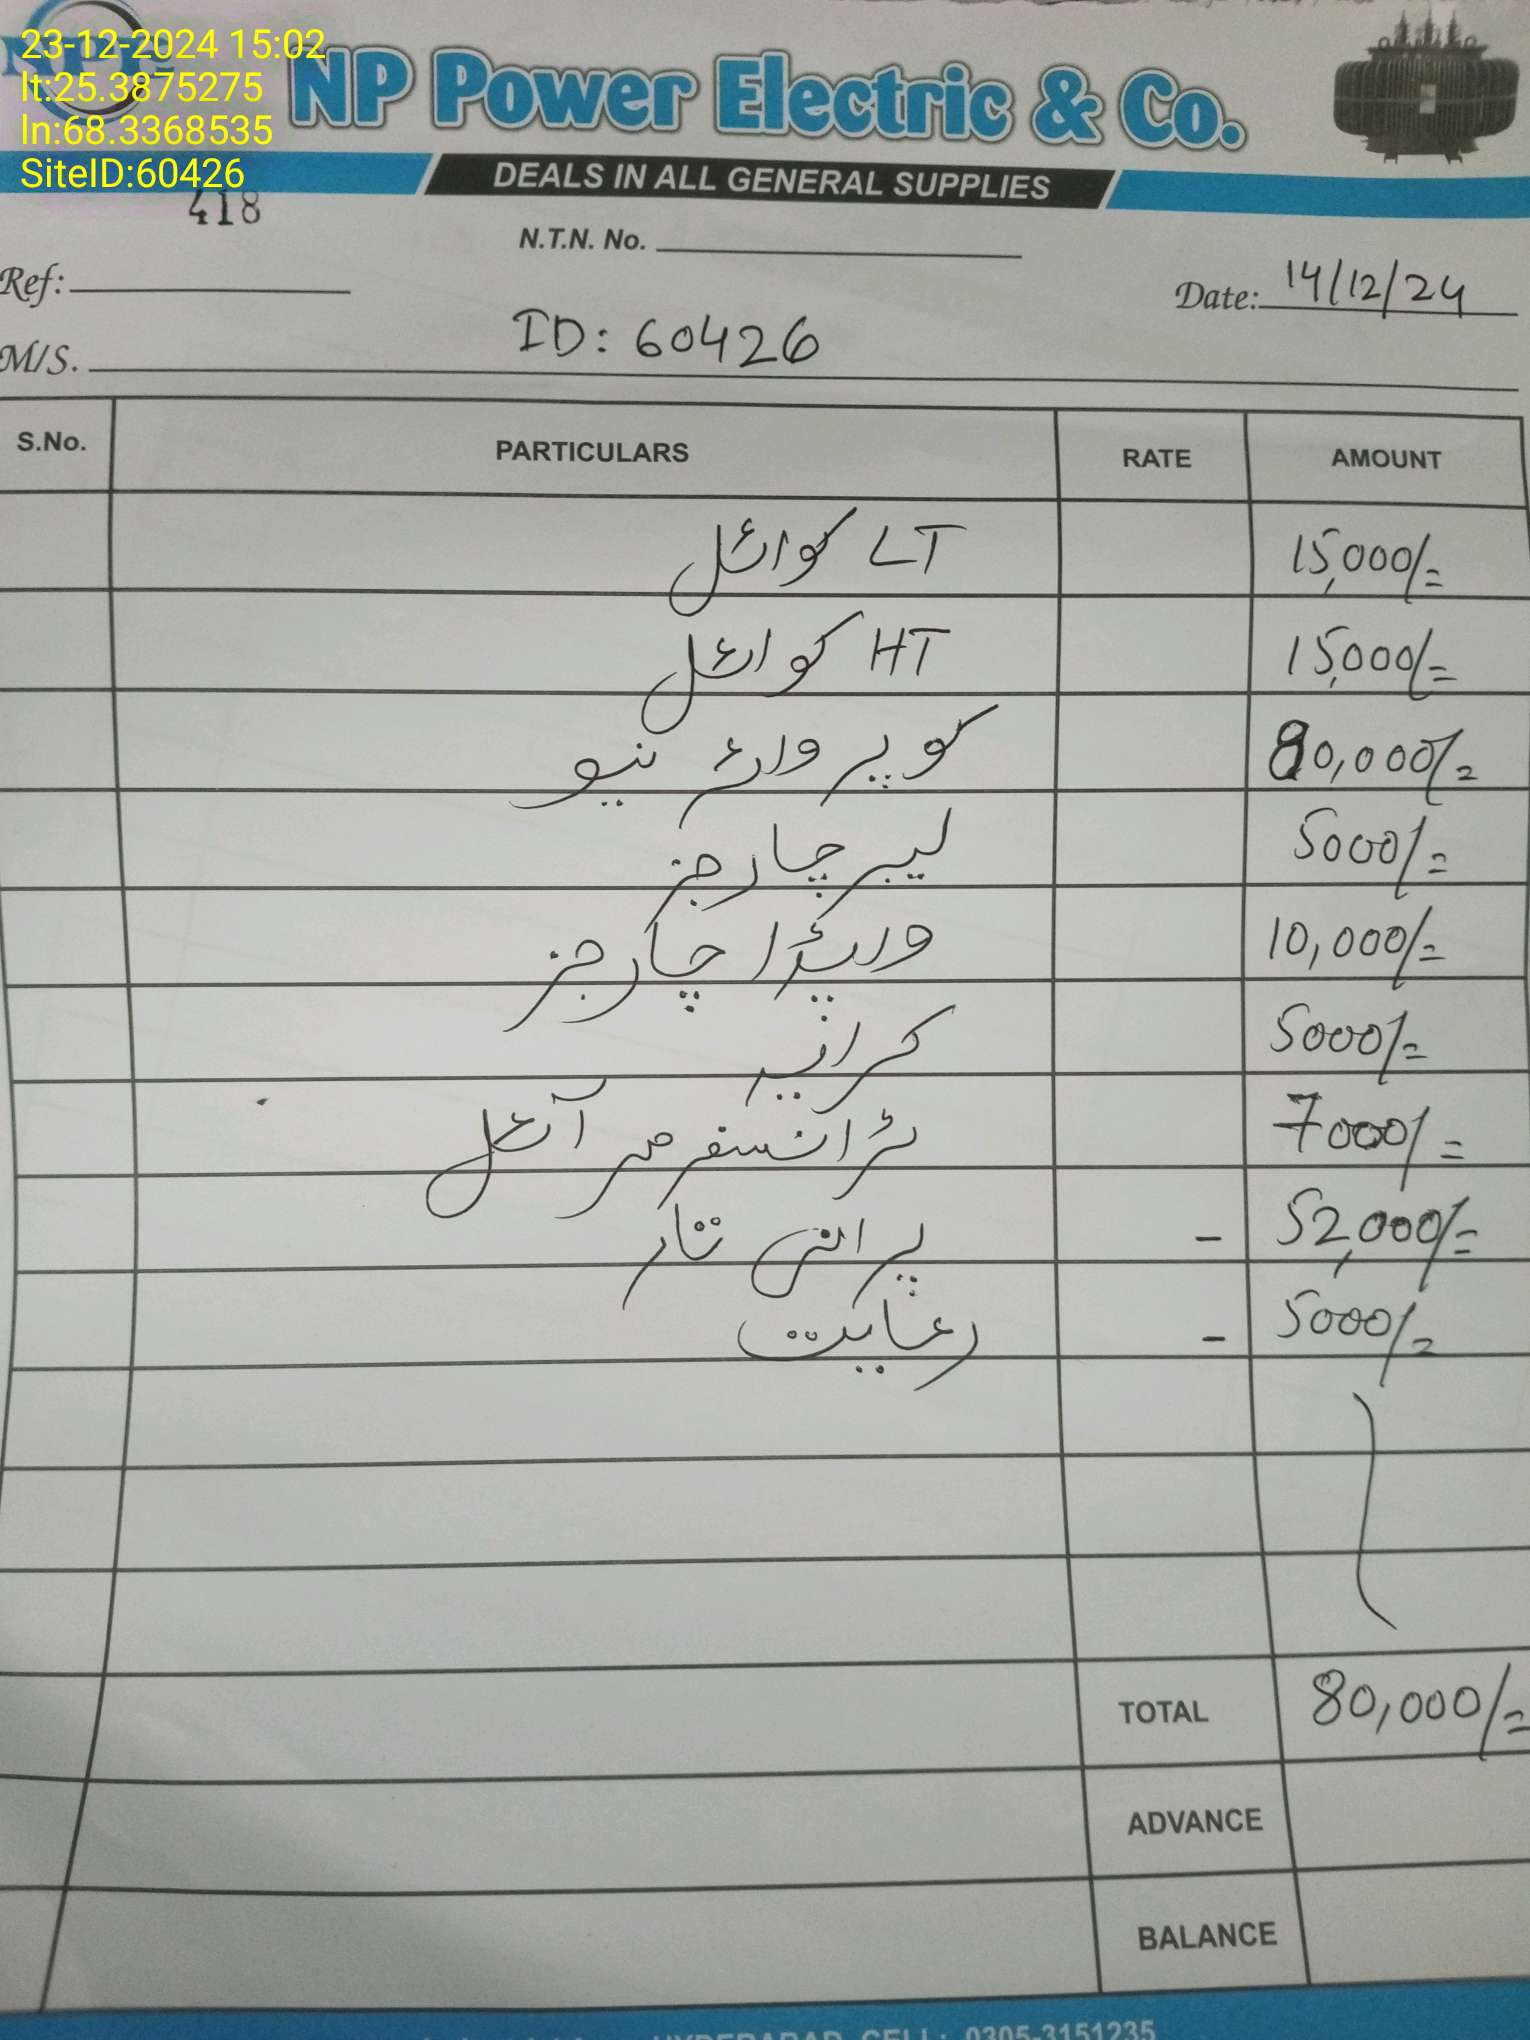 23-12-2024 15:02
lt:25.3875275
ln:68.3368535
SiteID:60426
NP Power Electric & Co.
DEALS IN ALL GENERAL SUPPLIES
418
N.T.N. No.
Ref:
Date: 14/12/24
M/S. ID: 60426
S.No. PARTICULARS RATE AMOUNT
LT کوائل 15,000/=
HT کوائل 15,000/=
کوپر وائر نیو 80,000/=
لیبر چارجز 5000/=
چارجز 10,000/=
کرایہ 5000/=
ٹرانسفرمر آئل 7000/=
پرانی تار - 52,000/=
رعایت - 5000/=
TOTAL 80,000/=
ADVANCE
BALANCE
HYDERABAD. CELL: 0305-3151235